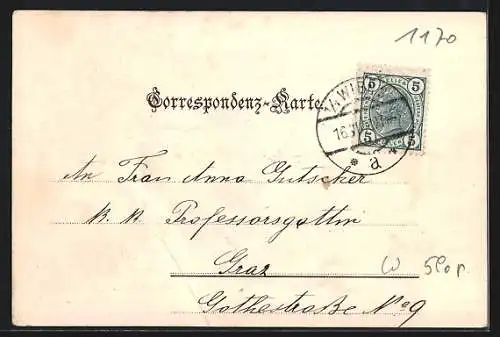 1170
5 5
5 5
WIE
16
* a *
Correspondenz-Karte
An Frau Anna Gutscher
K. K. Professorsgattin
Graz
Göthestraße No 9
W